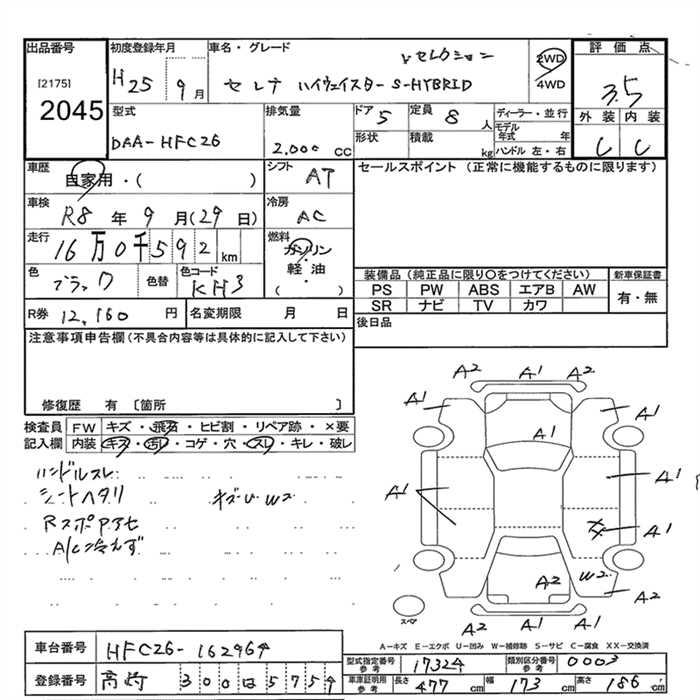 出品番号
[2175]
2045
初度登録年月
H25年9月
車名・グレード
Vセレクション
セレナ ハイウェイスター S-HYBRID
2WD
4WD
評価点
3.5
外装 内装
C C
型式
DAA-HFC26
排気量
2.000 cc
ドア 5
定員 8 人
形状
積載 kg
ディーラー・並行
モデル年式 年
ハンドル 左・右
車歴
自家用・( )
シフト AT
車検
R8年9月(29日)
冷房 AC
走行
16万0千592km
燃料
ガソリン・軽油・( )
色 ブラック
色替
色コード KH3
R券 12,160円
名変期限 月 日
セールスポイント (正常に機能するものに限ります)
装備品 (純正品に限り○をつけてください)
新車保証書
PS PW ABS エアB AW
SR ナビ TV カワ
有・無
後日品
注意事項申告欄(不具合内容等は具体的に記入して下さい)
修復歴 有 〔箇所 〕
検査員記入欄
FW キズ・飛石・ヒビ割・リペア跡・×要
内装 キズ・汚レ・コゲ・穴・スレ・キレ・破レ
ハンドルスレ
シートヘタリ
キズU W2
Rスポアセ
A/C冷えず
A2 A1 A2
A1 A1
A1
A1 A1
XX A1
A2 W2 A2
A2 A1 A1
スペア
A-キズ E-エクボ U-凹み W-補修跡 S-サビ C-腐食 XX-交換済
車台番号 HFC26-162964
登録番号 高崎 300は5754
型式指定番号 参考 17324
類別区分番号 参考 0003
車庫証明用 参考 長さ 477cm 幅 173cm 高さ 186cm